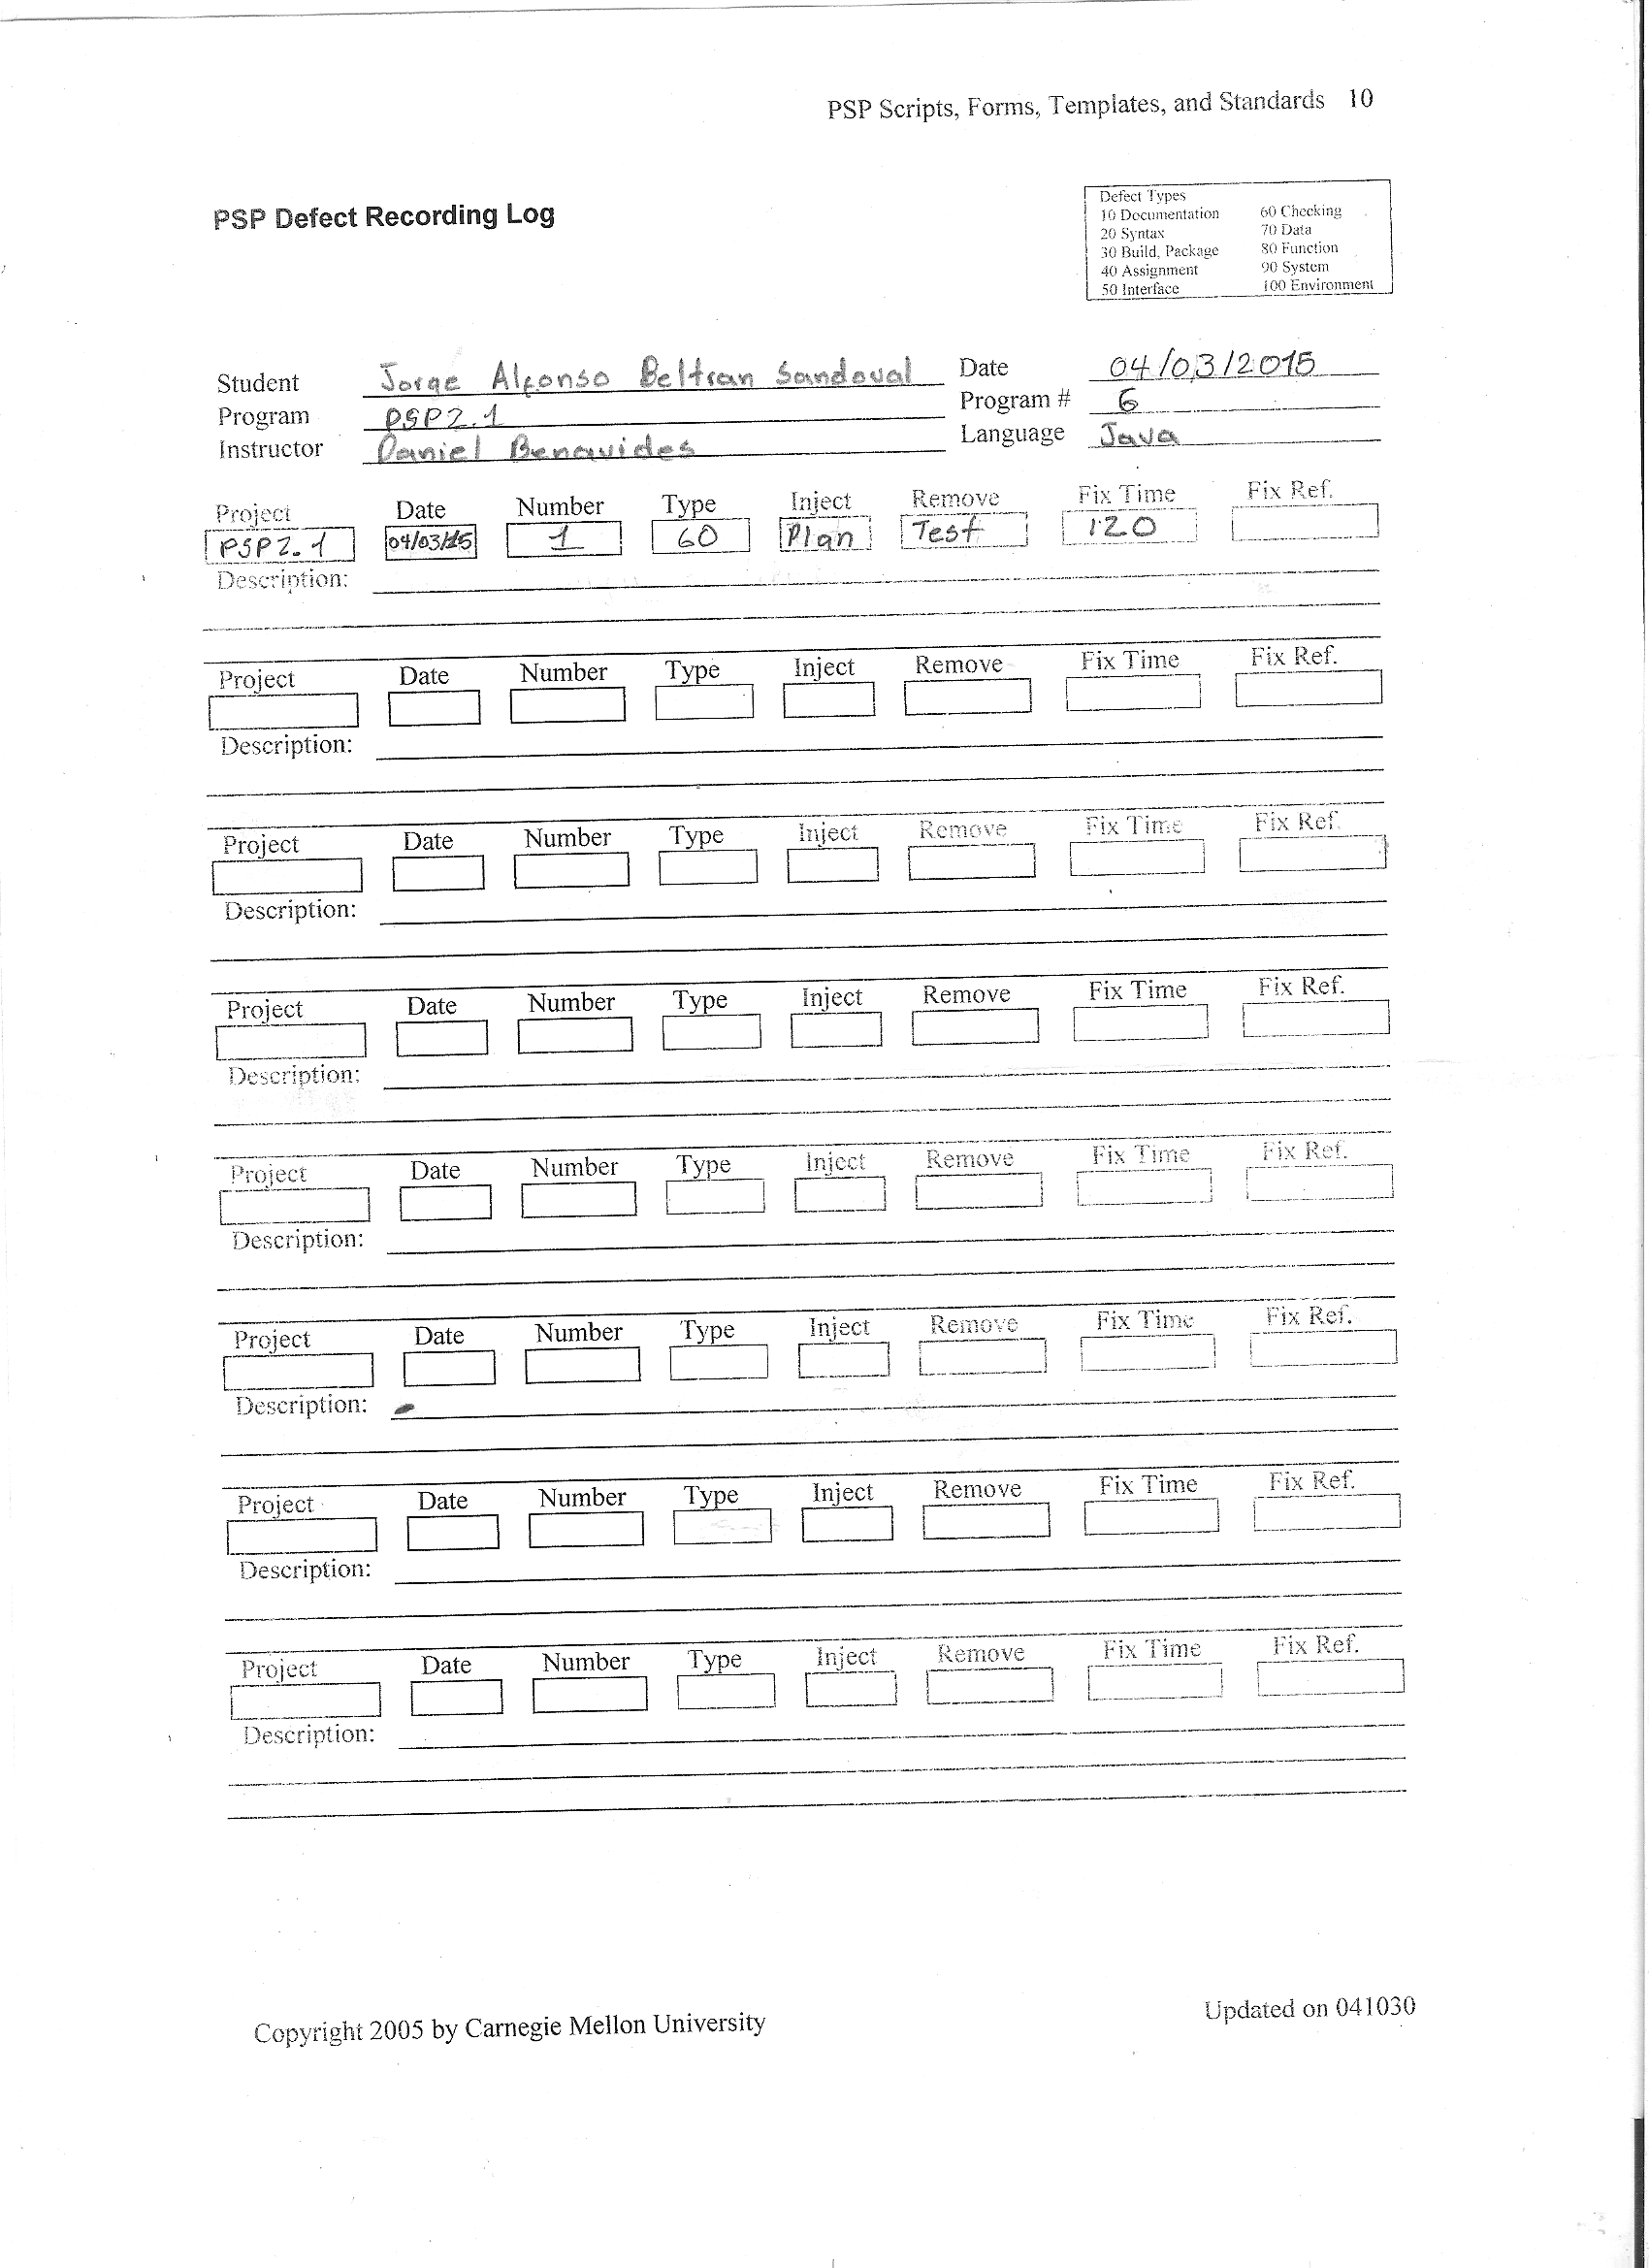 PSP Scripts, Forms, Templates, and Standards 10
PSP Defect Recording Log
Defect Types
10 Documentation 60 Checking
20 Syntax 70 Data
30 Build, Package 80 Function
40 Assignment 90 System
50 Interface 100 Environment
Student Jorge Alfonso Beltran Sandoval Date 04/03/2015
Program PSP2.1 Program # 6
Instructor Daniel Benavides Language Java
Project Date Number Type Inject Remove Fix Time Fix Ref.
PSP2.1 04/03/15 1 60 Plan Test 120
Description:
Project Date Number Type Inject Remove Fix Time Fix Ref.
Description:
Project Date Number Type Inject Remove Fix Time Fix Ref.
Description:
Project Date Number Type Inject Remove Fix Time Fix Ref.
Description:
Project Date Number Type Inject Remove Fix Time Fix Ref.
Description:
Project Date Number Type Inject Remove Fix Time Fix Ref.
Description:
Project Date Number Type Inject Remove Fix Time Fix Ref.
Description:
Project Date Number Type Inject Remove Fix Time Fix Ref.
Description:
Copyright 2005 by Carnegie Mellon University Updated on 041030